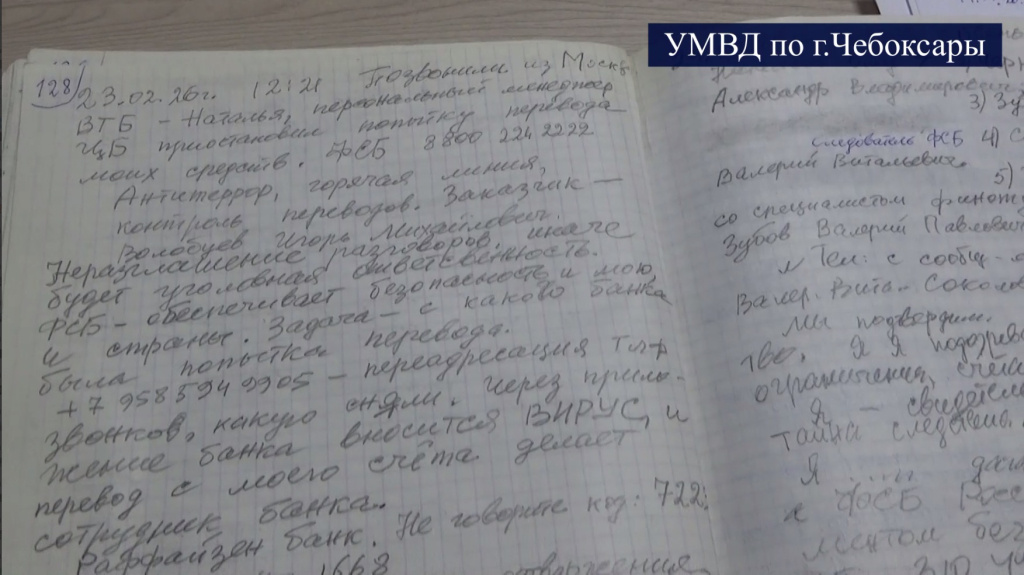 УМВД по г.Чебоксары
128
23.02.26г. 12:21 Позвонили из Москвы
ВТБ - Наталья, персональный менеджер
ЦБ приостановил попытку перевода
моих средств. ФСБ 8800 224 2222
Антитеррор, горячая линия,
контроль переводов. Заказчик —
Волобуев Игорь Михайлович.
Неразглашение разговоров, иначе
будет уголовная ответсвенность.
ФСБ - обеспечивает безопасность и мою
и страны. Задача - с каково банка
была попытка перевода.
+7 958 594 9905 - переадресация тлф
звонков, какую сняли. Через прило-
жение банка вносится ВИРУС, и
перевод с моего счёта делает
сотрудник банка.
Раффайзен банк. Не говорите код: 722;
1668
Александр Владимирович
3)
следователь ФСБ 4)
Валерий Витальевич.
5)
со специалистом
Зубов Валерий Павлович
Тел: с сообщ-
Валер. Вита-
Мы подтвердим.
тво. Я
ограничения счёта
Я - свидетель
Тайна следствия
Я ....
ФСБ